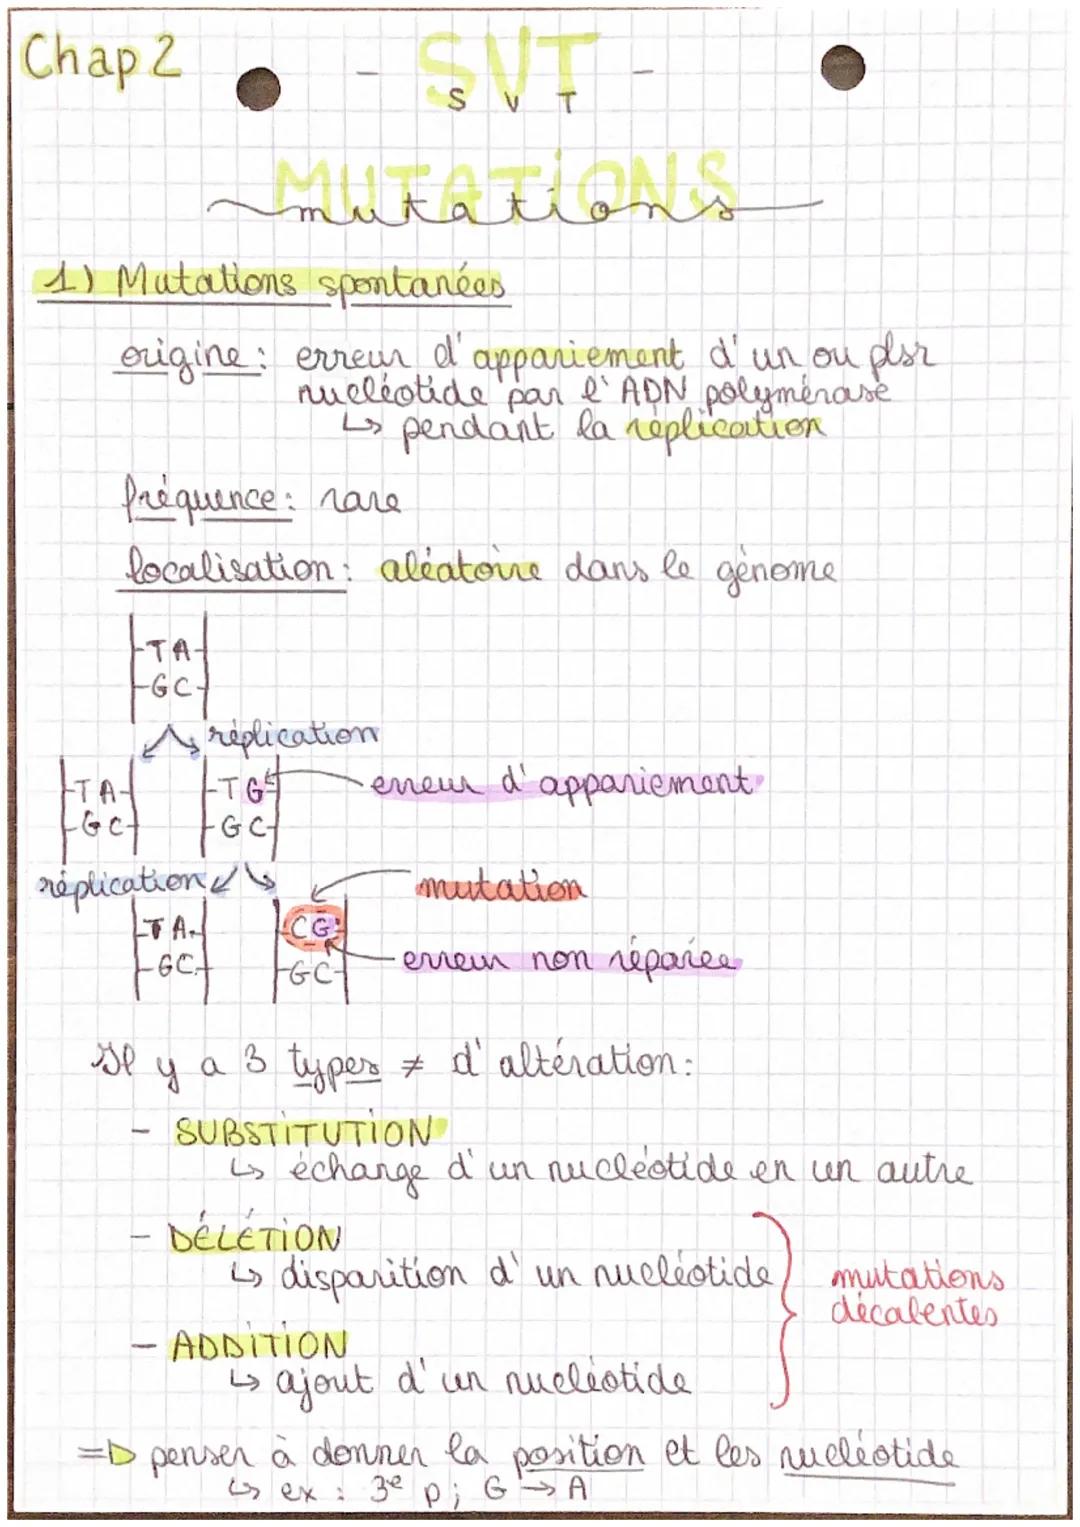 Chap 2
- SVT -
S V T
MUTATIONS
mutations
1) Mutations spontanées
origine : erreur d'appariement d'un ou plsr
nucléotide par l'ADN polymérase
↳ pendant la réplication
fréquence : rare
localisation : aléatoire dans le génome
T A
G C
réplication
T A T G erreur d'appariement
G C G C
réplication mutation
T A C G
G C G C erreur non réparée
Il y a 3 types ≠ d'altération :
- SUBSTITUTION
↳ échange d'un nucléotide en un autre
- DÉLÉTION
↳ disparition d'un nucléotide
mutations
décalentes
- ADDITION
↳ ajout d'un nucléotide
=> penser à donner la position et les nucléotide
↳ ex : 3e p ; G → A